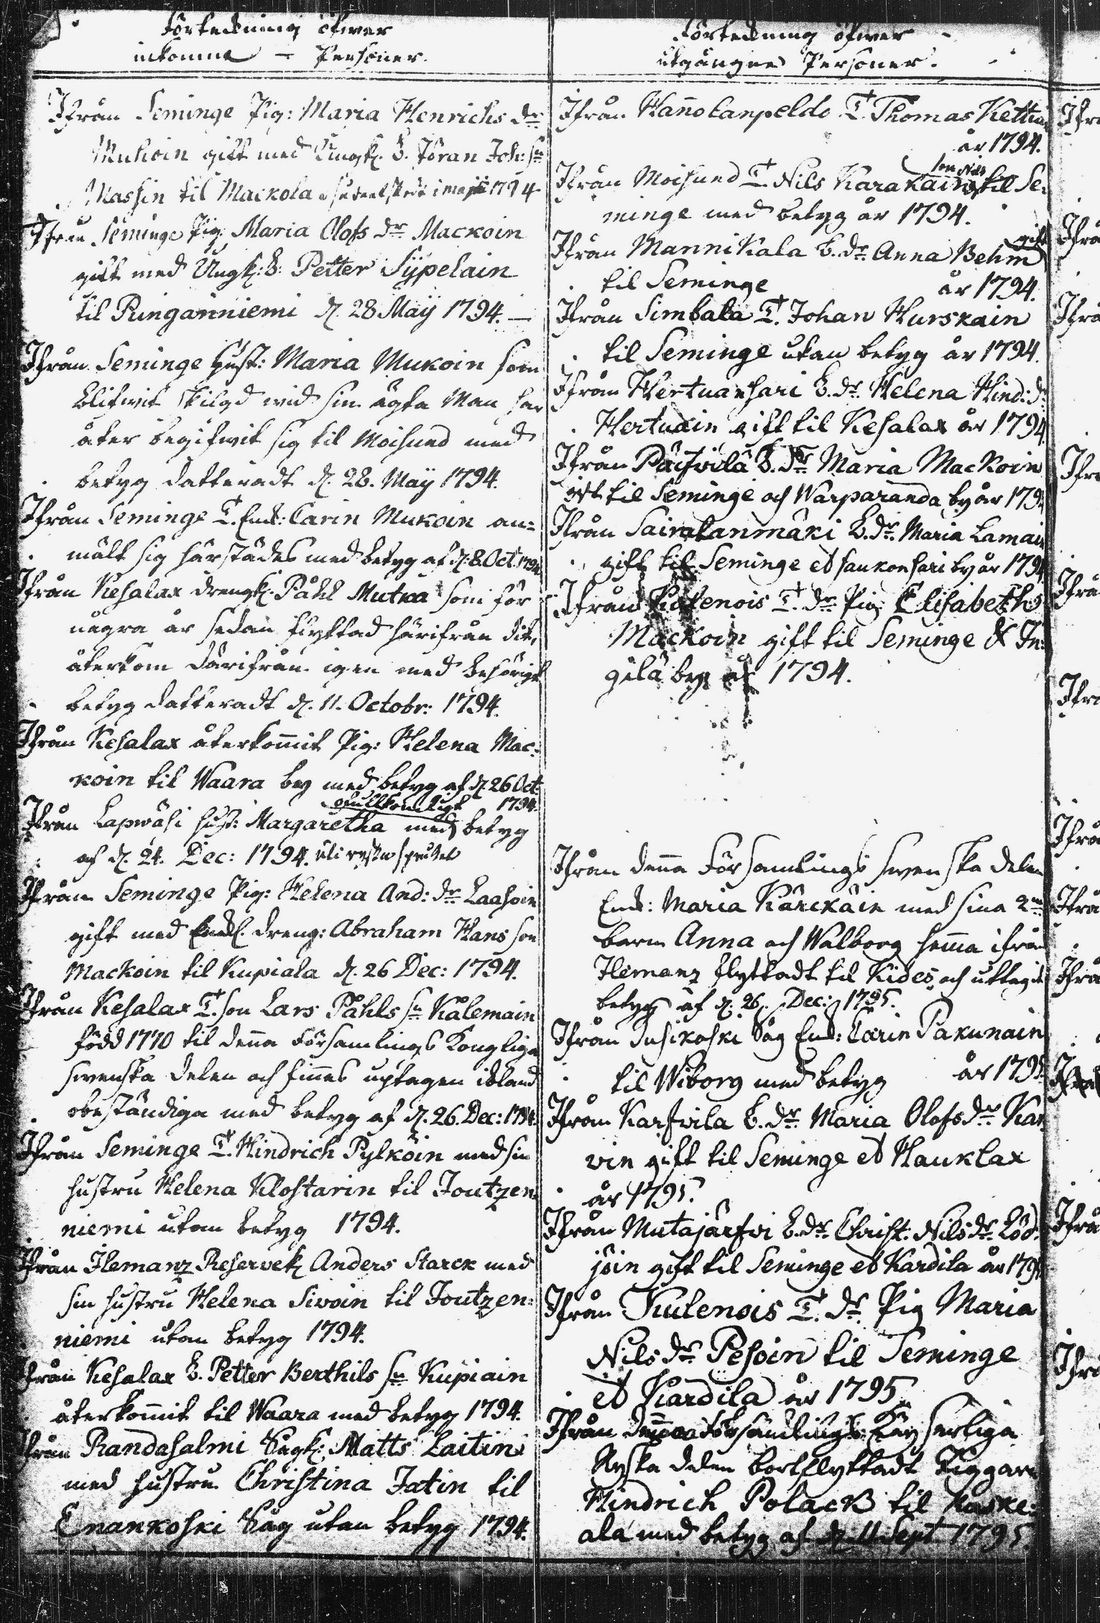 Förteckning öfwer
inkomne – Personer.
Ifrån Seminge Pig: Maria Henrichs dr
Mukoin gift med Ungk. B. Jöran Joh: sn
Massin til Mackola 1794
Ifrån Seminge Pig. Maria Olofs dr Mackoin
gift med Ungk: B: Petter Sypelain
til Ringanniemi d. 28 Maÿ 1794. –
Ifrån Seminge Hust: Maria Mukoin som
blifwit skilgd wid sin ägta Man har
åter begifwit sig til Moisund med
betyg datteradt d. 28. Maÿ 1794.
Ifrån Seminge T. Enk: Carin Mukoin an=
mält sig härstädes med betyg af d. 8. Oct. 1794
Ifrån Kesalax drengk. Påhl Mutka som för
några år sedan flyttad härifrån dit,
återkom därifrån igen med behörigt
betyg datteradt d. 11. Octobr: 1794.
Ifrån Kesalax återkommit Pig: Helena Mac=
koin til Waara by med betyg af d. 26 Oct
1794.
Ifrån Lapwäsi hust: Margaretha med betyg
af d. 24. Dec: 1794.
Ifrån Seminge Pig: Helena And: dr Laasoin
gift med dreng: Abraham Hans son
Mackoin til Kupiala d. 26 Dec: 1794.
Ifrån Kesalax T. son Lars Påhls sn Kalemain
född 1770 til denna Församlings Kongliga
swenska delen och finnes uptagen ibland
obeständiga med betyg af d. 26. Dec: 1794.
Ifrån Seminge T. Hindrich Pylköin med sin
hustru Helena Klostarin til Joutzen
niemi utan betyg 1794.
Ifrån Ilemanz Reservek. Anders Starck med
sin hustru Helena Sivoin til Joutzen=
niemi utan betyg 1794.
Ifrån Kesalax B. Petter Berthils sn Kupiain
återkommit til Waara med betyg 1794.
Ifrån Randasalmi Sågk: Matts Laitin
med hustru Christina Jatin til
Enankoski Såg utan betyg 1794.
Förteckning öfwer
utgångne Personer.
Ifrån Hannolanpeldo T. Thomas Kettu
år 1794.
Ifrån Moisund T. Nils Karakain son Nils til Se=
minge med betyg år 1794.
Ifrån Mannikala B. dr Anna Behm gift
til Seminge år 1794.
Ifrån Simbala T. Johan Hurskain
til Seminge utan betyg år 1794.
Ifrån Hertuansari B. dr Helena Hind: d
Hertuain gift til Kesalax år 1794
Ifrån Päifvilä B. dr Maria Mackoin
gift til Seminge och Warparanda by år 1794
Ifrån Sairalanmäki B. dr Maria Lamain
gift til Seminge et Saukonsari by år 1794
Ifrån Kulenois T. dr Pig Elisabeth
Mackoin gift til Seminge & In=
gilä by år 1794.
Ifrån denna Församlings swenska delen
Enk: Maria Kärckäin med sina 2ne
barn Anna och Walborg hemma ifrån
Ilemanz flyttadt til Kides, och uttagit
betyg af d. 26. Dec: 1795.
Ifrån Jusikoski Såg Enk: Carin Pakunain
til Wiborg med betyg år 1795
Ifrån Karfvila B. dr Maria Olofs dr Kar
vin gift til Seminge et Hauklax
år 1795.
Ifrån Mutajärfvi B. dr Christ. Nils dr Löd
jöin gift til Seminge et Kardila år 1795
Ifrån Kulenois T. dr Pig Maria
Nils dr Pesoin til Seminge
et Kardila år 1795
Ifrån denna Församlings Kayserliga
Ryska delen bortflyttadt Tiggare
Hindrich Polack til Kaske=
ala med betyg af d. 11 Sept 1795.